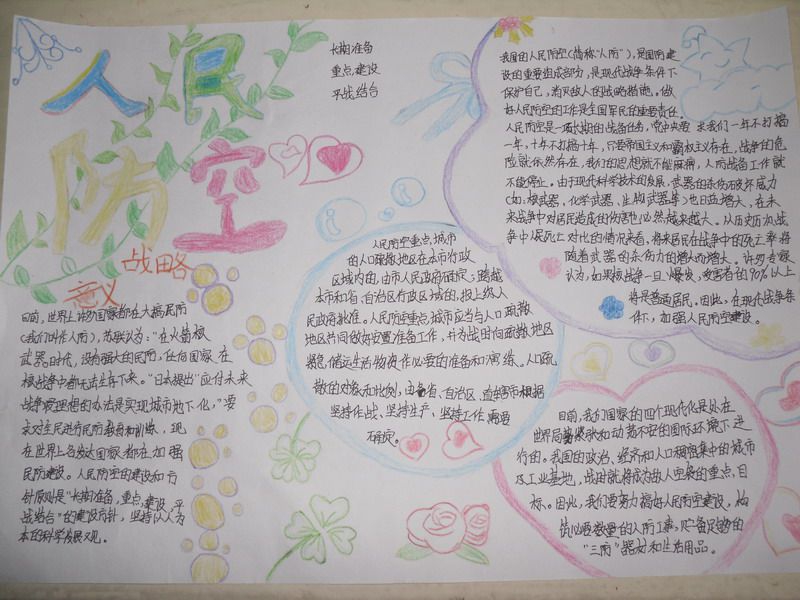 人民
防空
战略
意义
长期准备
重点建设
平战结合
目前,世界上许多国家都在大搞民防
(我们叫作人防),苏联认为:"在火箭核
武器时代,没有强大的民防,任何国家在
核战争中都无法生存下来。"日本提出"应付未来
战争最理想的办法是实现城市地下化,"要
求对全民进行民防教育和训练,现
在世界上各发达国家都在加强
民防建设。人民防空的建设和方
针原则是"长期准备,重点建设,平
战结合"的建设方针,坚持以人为
本的科学发展观。
人民防空重点城市
的人口疏散地区在本市行政
区域内的,由市人民政府确定;跨越
本市和省、自治区行政区域的,报上级人
民政府批准。人民防空重点城市应当与人口疏散
地区共同做好安置准备工作,并为战时向疏散地区
储运生活物资作必要的准备和演练。人口疏
散的对象和比例,由各省、自治区、直辖市根据
坚持作战、坚持生产,坚持工作需要
确定。
我国的人民防空(简称"人防"),是国防建
设的重要组成部分,是现代战争条件下
保护自己,消灭敌人的战略措施。做
好人民防空的工作是全国军民的重要责任。
人民防空是一项长期的战备任务,党中央要求我们一年不打搞
一年,十年不打搞十年,只要帝国主义和霸权主义存在,战争的危
险就依然存在,我们的思想就不能麻痹,人防战备工作就
不能停止。由于现代科学技术的发展,武器的杀伤破坏威力
(如:核武器,化学武器、生物武器等)也日益增大,在未
来战争中对居民造成的伤害也必然越来越大。从历次
争中军民死亡对比的情况来看,将来居民在战争中的死亡率将
随着武器的杀伤力的增大而增大。许多专家
认为,如果核战争一旦爆发,受害者的90%以上
将是普通居民。因此,在现代战争条
件下,加强人民防空建设。
目前,我们国家的四个现代化是处在
世界局势紧张和动荡不安的国际环境下进
行的。我国的政治、经济和人口稠密集中的城市
及工业基地,战时就将成为敌人空袭的重点目
标。因此,我们要努力搞好人民防空建设,构
筑必要数量的人防工事,贮备足够的
"三防"器材和生活用品。